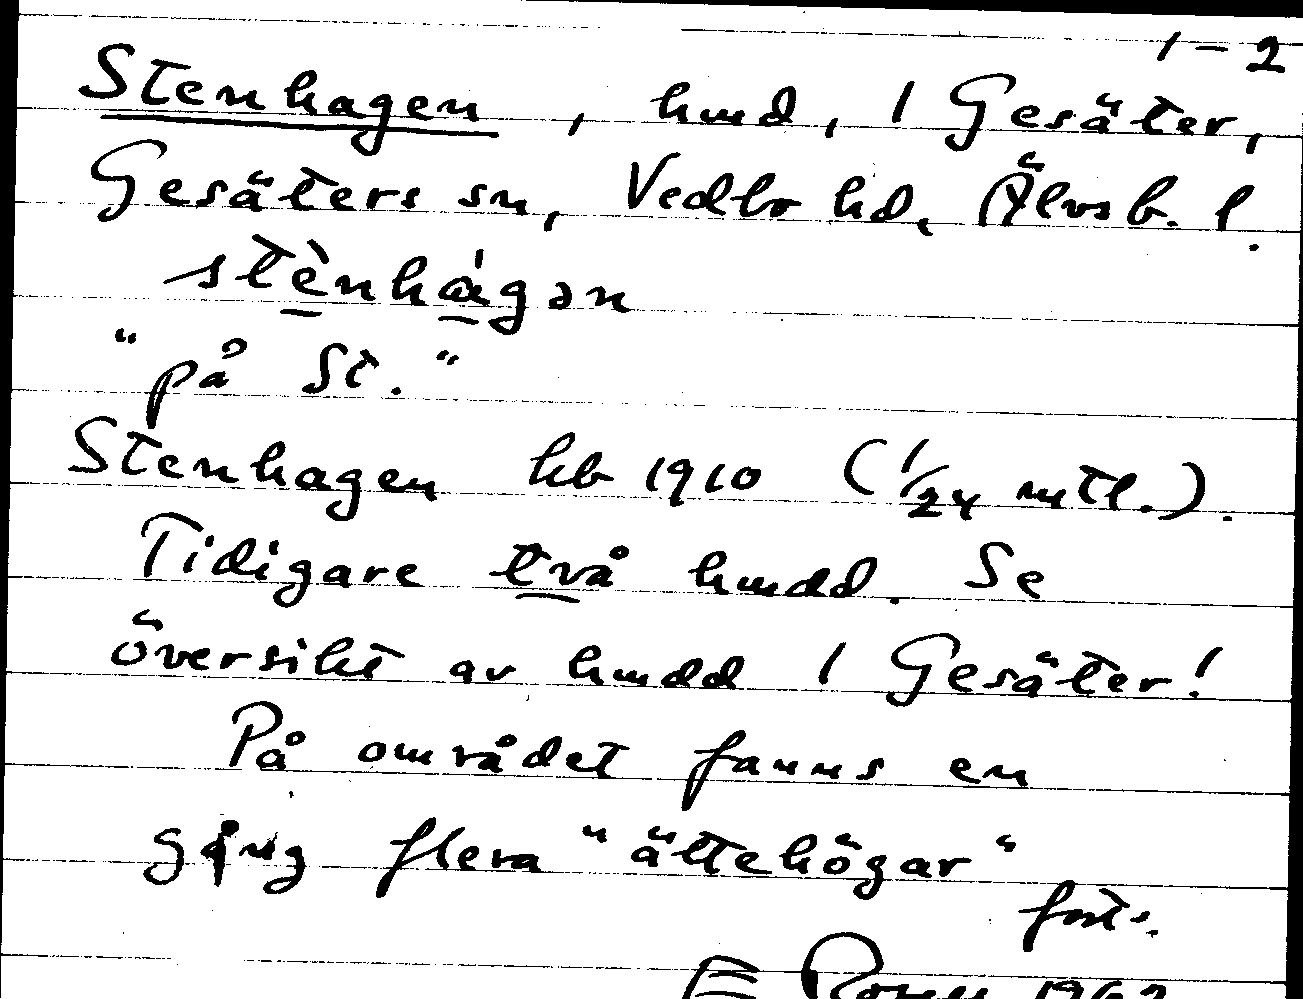 1-2
Stenhagen, hmd, I Gesäter,
Gesäters sn, Vedbo hd, Älvsb. l.
stènhágən
"på St."
Stenhagen kb 1910 (1/24 mtl.).
Tidigare två hmdd. Se
översikt av hmdd I Gesäter!
På området fanns en
gång flera "ättehögar"
fort.
E